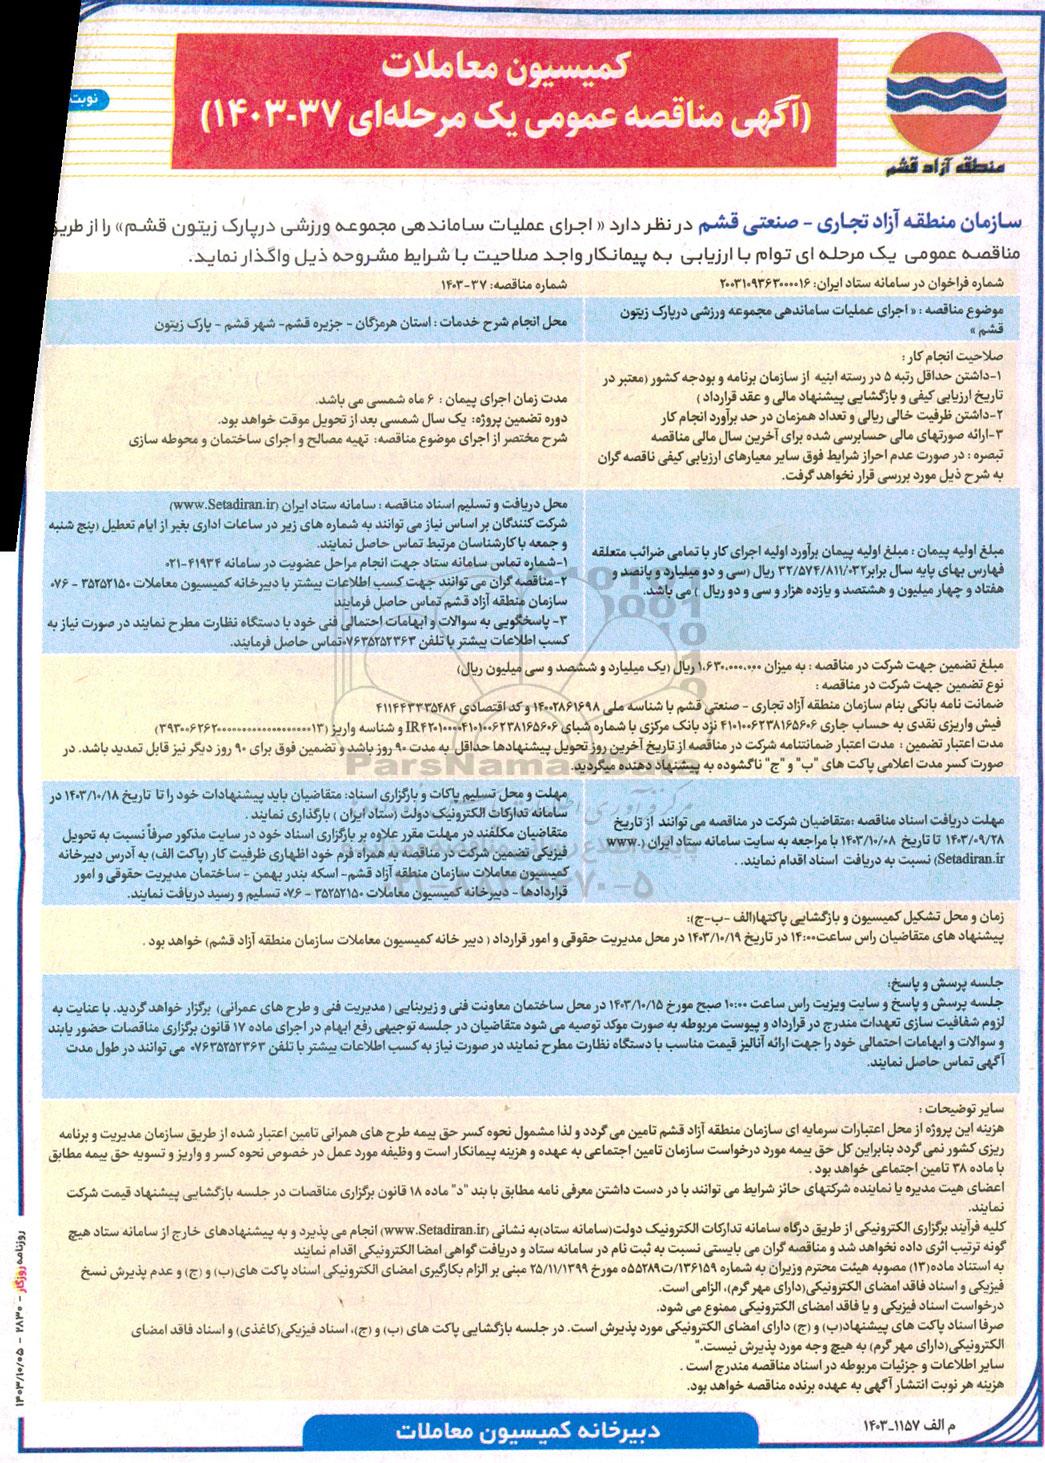 کمیسیون معاملات
(آگهی مناقصه عمومی یک مرحله‌ای ۳۷-۱۴۰۳)
نوبت
منطقه آزاد قشم
سازمان منطقه آزاد تجاری - صنعتی قشم در نظر دارد « اجرای عملیات ساماندهی مجموعه ورزشی درپارک زیتون قشم» را از طریق
مناقصه عمومی یک مرحله ای توام با ارزیابی به پیمانکار واجد صلاحیت با شرایط مشروحه ذیل واگذار نماید.
شماره فراخوان در سامانه ستاد ایران: ۲۰۰۳۱۰۹۳۶۳۰۰۰۰۱۶
شماره مناقصه: ۳۷-۱۴۰۳
موضوع مناقصه : « اجرای عملیات ساماندهی مجموعه ورزشی درپارک زیتون
قشم »
محل انجام شرح خدمات : استان هرمزگان - جزیره قشم- شهر قشم - پارک زیتون
صلاحیت انجام کار :
۱-داشتن حداقل رتبه ۵ در رسته ابنیه از سازمان برنامه و بودجه کشور (معتبر در
تاریخ ارزیابی کیفی و بازگشایی پیشنهاد مالی و عقد قرارداد )
۲-داشتن ظرفیت خالی ریالی و تعداد همزمان در حد برآورد انجام کار
۳-ارائه صورتهای مالی حسابرسی شده برای آخرین سال مالی مناقصه
تبصره : در صورت عدم احراز شرایط فوق سایر معیارهای ارزیابی کیفی ناقصه گران
به شرح ذیل مورد بررسی قرار نخواهد گرفت.
مدت زمان اجرای پیمان : ۶ ماه شمسی می باشد.
دوره تضمین پروژه: یک سال شمسی بعد از تحویل موقت خواهد بود.
شرح مختصر از اجرای موضوع مناقصه: تهیه مصالح و اجرای ساختمان و محوطه سازی
مبلغ اولیه پیمان : مبلغ اولیه پیمان برآورد اولیه اجرای کار با تمامی ضرائب متعلقه
فهارس بهای پایه سال برابر۳۲/۵۷۴/۸۱۱/۰۳۲ ریال (سی و دو میلیارد و پانصد و
هفتاد و چهار میلیون و هشتصد و یازده هزار و سی و دو ریال ) می باشد.
محل دریافت و تسلیم اسناد مناقصه : سامانه ستاد ایران (www.Setadiran.ir)
شرکت کنندگان بر اساس نیاز می توانند به شماره های زیر در ساعات اداری بغیر از ایام تعطیل (پنج شنبه
و جمعه با کارشناسان مرتبط تماس حاصل نمایند.
۱-شماره تماس سامانه ستاد جهت انجام مراحل عضویت در سامانه ۴۱۹۳۴-۰۲۱
۲-مناقصه گران می توانند جهت کسب اطلاعات بیشتر با دبیرخانه کمیسیون معاملات ۳۵۲۵۲۱۵۰ - ۰۷۶
سازمان منطقه آزاد قشم تماس حاصل فرمایند
۳- پاسخگویی به سوالات و ابهامات احتمالی فنی خود با دستگاه نظارت مطرح نمایند در صورت نیاز به
کسب اطلاعات بیشتر با تلفن ۰۷۶۳۵۲۵۲۳۶۳تماس حاصل فرمایند.
مبلغ تضمین جهت شرکت در مناقصه : به میزان ۱،۶۳۰،۰۰۰،۰۰۰ ریال (یک میلیارد و ششصد و سی میلیون ریال)
نوع تضمین جهت شرکت در مناقصه :
ضمانت نامه بانکی بنام سازمان منطقه آزاد تجاری - صنعتی قشم با شناسه ملی ۱۴۰۰۲۸۶۱۶۹۸ و کد اقتصادی ۴۱۱۴۴۳۳۳۵۴۸۴
فیش واریزی نقدی به حساب جاری ۴۱۰۱۰۰۶۲۳۸۱۶۵۶۰۶ نزد بانک مرکزی با شماره شبای
مدت اعتبار تضمین : مدت اعتبار ضمانتنامه شرکت در مناقصه از تاریخ آخرین روز تحویل پیشنهادها حداقل به مدت ۹۰ روز باشد و تضمین فوق برای ۹۰ روز دیگر نیز قابل تمدید باشد. در
صورت کسر مدت اعلامی پاکت های "ب" و "ج" ناگشوده به پیشنهاد دهنده میگردید.
مهلت دریافت اسناد مناقصه :متقاضیان شرکت در مناقصه می توانند از تاریخ
۱۴۰۳/۰۹/۲۸ تا تاریخ ۱۴۰۳/۱۰/۰۸ با مراجعه به سایت سامانه ستاد ایران (www.
Setadiran.ir) نسبت به دریافت اسناد اقدام نمایند. .
مهلت و محل تسلیم پاکات و بارگزاری اسناد: متقاضیان باید پیشنهادات خود را تا تاریخ ۱۴۰۳/۱۰/۱۸ در
سامانه تدارکات الکترونیک دولت (ستاد ایران ) بارگذاری نمایند .
متقاضیان مکلفند در مهلت مقرر علاوه بر بارگزاری اسناد خود در سایت مذکور صرفاً نسبت به تحویل
فیزیکی تضمین شرکت در مناقصه به همراه فرم خود اظهاری ظرفیت کار (پاکت الف) به آدرس دبیرخانه
کمیسیون معاملات سازمان منطقه آزاد قشم- اسکه بندر بهمن - ساختمان مدیریت حقوقی و امور
قراردادها - دبیرخانه کمیسیون معاملات ۳۵۲۵۲۱۵۰ - ۰۷۶ تسلیم و رسید دریافت نمایند.
زمان و محل تشکیل کمیسیون و بازگشایی پاکتها(الف -ب-ج):
پیشنهاد های متقاضیان راس ساعت۱۴:۰۰ در تاریخ ۱۴۰۳/۱۰/۱۹ در محل مدیریت حقوقی و امور قرارداد ( دبیر خانه کمیسیون معاملات سازمان منطقه آزاد قشم) خواهد بود .
جلسه پرسش و پاسخ:
جلسه پرسش و پاسخ و سایت ویزیت راس ساعت ۱۰:۰۰ صبح مورخ ۱۴۰۳/۱۰/۱۵ در محل ساختمان معاونت فنی و زیربنایی ( مدیریت فنی و طرح های عمرانی) برگزار خواهد گردید. با عنایت به
لزوم شفافیت سازی تعهدات مندرج در قرارداد و پیوست مربوطه به صورت موکد توصیه می شود متقاضیان در جلسه توجیهی رفع ابهام در اجرای ماده ۱۷ قانون برگزاری مناقصات حضور یابند
و سوالات و ابهامات احتمالی خود را جهت ارائه آنالیز قیمت مناسب با دستگاه نظارت مطرح نمایند در صورت نیاز به کسب اطلاعات بیشتر با تلفن ۰۷۶۳۵۲۵۲۳۶۳ می توانند در طول مدت
آگهی تماس حاصل نمایند.
سایر توضیحات :
هزینه این پروژه از محل اعتبارات سرمایه ای سازمان منطقه آزاد قشم تامین می گردد و لذا مشمول نحوه کسر حق بیمه طرح های همرانی تامین اعتبار شده از طریق سازمان مدیریت و برنامه
ریزی کشور نمی گردد بنابراین کل حق بیمه مورد درخواست سازمان تامین اجتماعی به عهده و هزینه پیمانکار است و وظیفه مورد عمل در خصوص نحوه کسر و واریز و تسویه حق بیمه مطابق
با ماده ۳۸ تامین اجتماعی خواهد بود .
اعضای هیت مدیره یا نماینده شرکتهای حائز شرایط می توانند با در دست داشتن معرفی نامه مطابق با بند "د" ماده ۱۸ قانون برگزاری مناقصات در جلسه بازگشایی پیشنهاد قیمت شرکت
نمایند.
کلیه فرآیند برگزاری الکترونیکی از طریق درگاه سامانه تدارکات الکترونیک دولت(سامانه ستاد)به نشانی (www.Setadiran.ir) انجام می پذیرد و به پیشنهادهای خارج از سامانه ستاد هیچ
گونه ترتیب اثری داده نخواهد شد و مناقصه گران می بایستی نسبت به ثبت نام در سامانه ستاد و دریافت گواهی امضا الکترونیکی اقدام نمایند
به استناد ماده(۱۳) مصوبه هیئت محترم وزیران به شماره ۱۳۶۱۵۹/ت۵۵۲۸۹ه مورخ ۲۵/۱۱/۱۳۹۹ مبنی بر الزام بکارگیری امضای الکترونیکی اسناد پاکت های(ب) و (ج) و عدم پذیرش نسخ
فیزیکی و اسناد فاقد امضای الکترونیکی(دارای مهر گرم)، الزامی است.
درخواست اسناد فیزیکی و یا فاقد امضای الکترونیکی ممنوع می شود.
صرفا اسناد پاکت های پیشنهاد(ب) و (ج) دارای امضای الکترونیکی مورد پذیرش است. در جلسه بازگشایی پاکت های (ب) و (ج)، اسناد فیزیکی(کاغذی) و اسناد فاقد امضای
الکترونیکی(دارای مهر گرم) به هیچ وجه مورد پذیرش نیست."
سایر اطلاعات و جزئیات مربوطه در اسناد مناقصه مندرج است .
هزینه هر نوبت انتشار آگهی به عهده برنده مناقصه خواهد بود.
م الف ۱۱۵۷-۱۴۰۳
دبیرخانه کمیسیون معاملات
روزنامه روزگار - ۲۸۳۰ - ۱۴۰۳/۱۰/۰۵
ParsNamadData